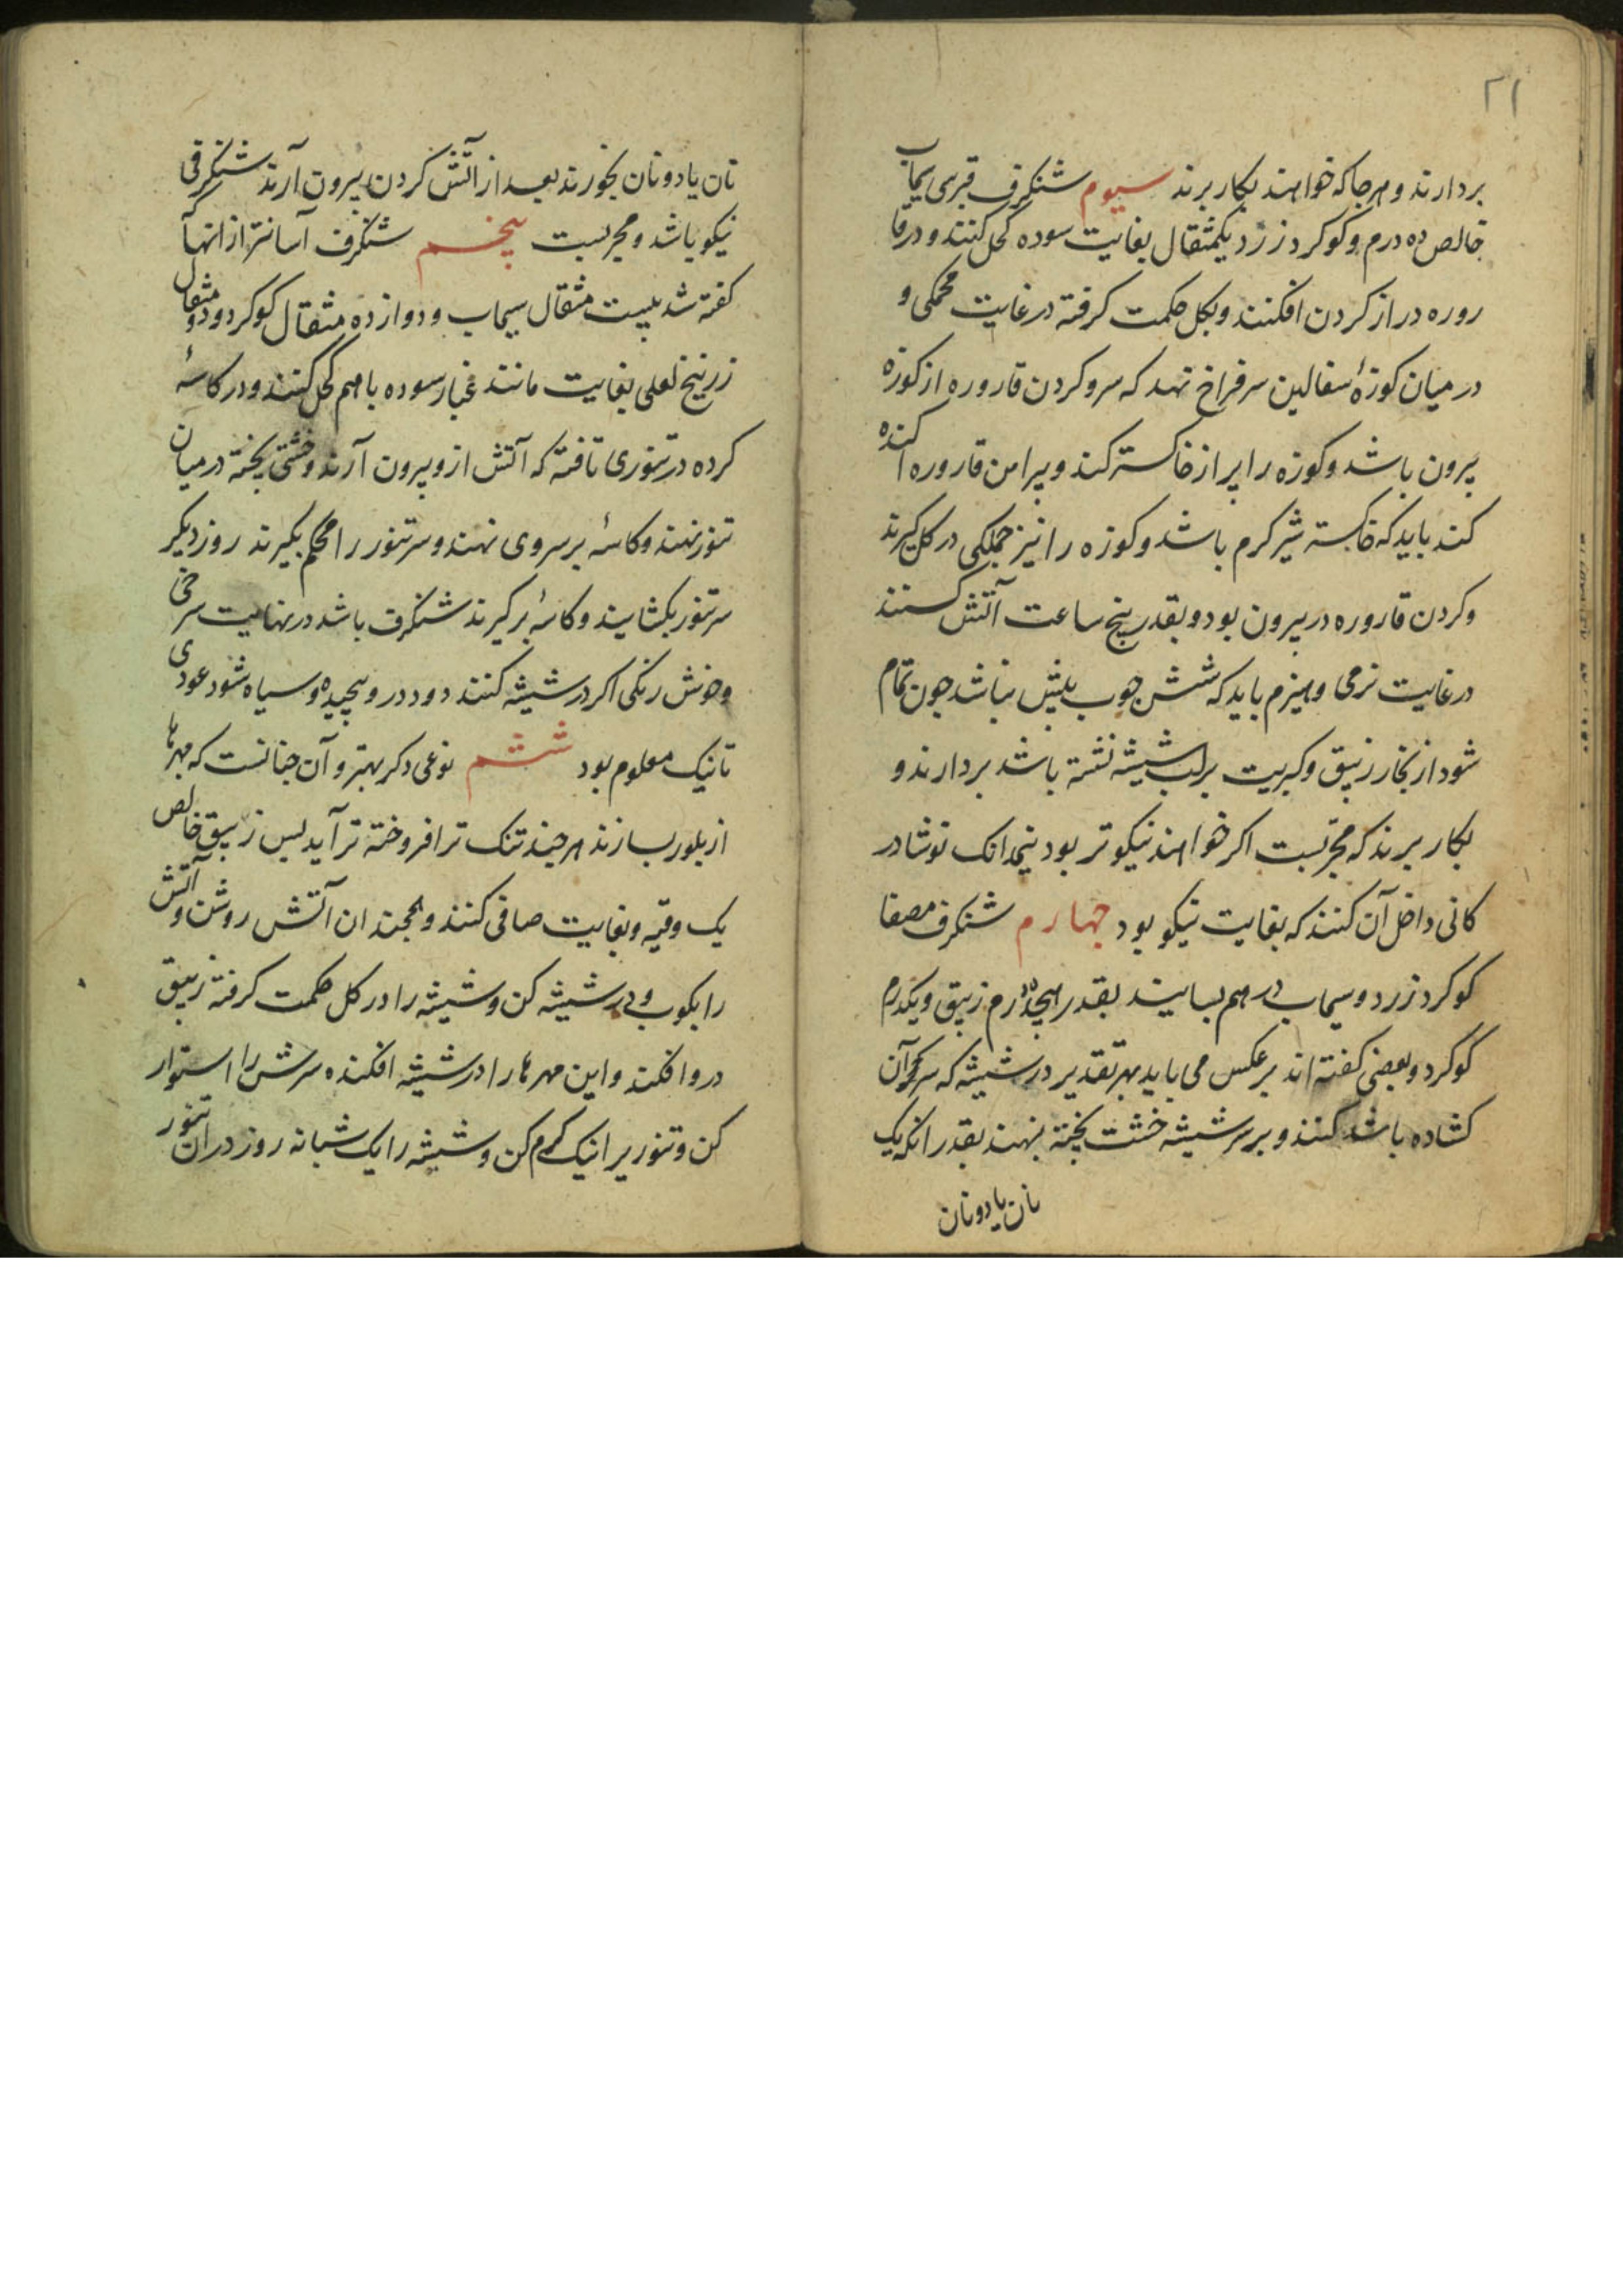 ۲۱
بردارند و هرجا که خواهند بکار برند سیوم شنکرف قبرسی سیماب
خالص ده درم و کوکرد زرد یکمثقال بغایت سوده کحل کنند و در قا
روره دراز کردن افکنند و بکل حکمت کرفته در غایت محکمی و
در میان کوزهٔ سفالین سرفراخ نهد که سر و کردن قاروره از کوزه
بیرون باشد و کوزه را پر از خاکستر کند و پیرامن قاروره اکنده
کند باید که خاکستر شیر کرم باشد و کوزه را نیز جملکی در کل کیرند
و کردن قاروره در بیرون بود و بقدر پنج ساعت آتش کنند
در غایت نرمی و هیزم باید که شش جوب بیش نباشد جون تمام
شود از بخار زیبق و کبریت بر لب شیشه نشسته باشد بردارند و
بکار برند که مجربست اکر خواهند نیکوتر بود نیمدانک نوشادر
کانی داخل آن کنند که بغایت نیکو بود جهارم شنکرف مصفا
کوکرد زرد و سیماب در هم بسایند بقدر هیجده درم زیبق و یکدرم
کوکرد و بعضی کفته اند بر عکس می باید بهر تقدیر در شیشه که سر آن
کشاده باشد کنند و بر سر شیشه خشت پخته بنهند بقدر انکه یک
نان یا دو نان
نان یا دو نان بخورند بعد از اتش کردن بیرون آرند شنکرفی
نیکو باشد و مجربست پنجم شنکرف آسانتر از انها
کفته شد بیست مثقال سیماب و دوازده مثقال کوکرد و دو مثقال
زرنیخ لعلی بغایت مانند غبار سوده با هم کحل کنند و در کاسهٔ
کرده در تنوری تافته که آتش ازو بیرون آرند و خشتی پخته در میان
تنور نهند و کاسهٔ بر سر وی نهند و سر تنور را محکم بکیرند روز دیکر
سر تنور بکشایند و کاسهٔ برکیرند شنکرف باشد در نهایت سرخی
و خوش رنکی اکر در شیشه کنند دود درو پیچیده و سیاه شود عودی
تا نیک معلوم بود ششم نوعی دکر بهتر و آن جنانست که مهرها
از بلور بسازند هر چند تنک تر افروخته تر آید پس زیبق خالص
یک وقیه و بغایت صافی کنند و همجندان آتش روشن و آتش
را بکوب و در شیشه کن و شیشه را در کل حکمت کرفته زیبق
درو افکند و این مهرها را در شیشه افکنده سرش را استوار
کن و تنور را نیک کرم کن و شیشه را یک شبانه روز در ان تنور